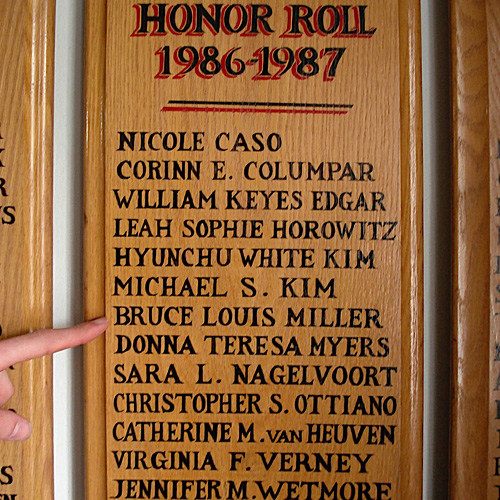 HONOR ROLL
1986-1987
NICOLE CASO
CORINN E. COLUMPAR
WILLIAM KEYES EDGAR
LEAH SOPHIE HOROWITZ
HYUNCHU WHITE KIM
MICHAEL S. KIM
BRUCE LOUIS MILLER
DONNA TERESA MYERS
SARA L. NAGELVOORT
CHRISTOPHER S. OTTIANO
CATHERINE M. VAN HEUVEN
VIRGINIA F. VERNEY
JENNIFER M. WETMORE